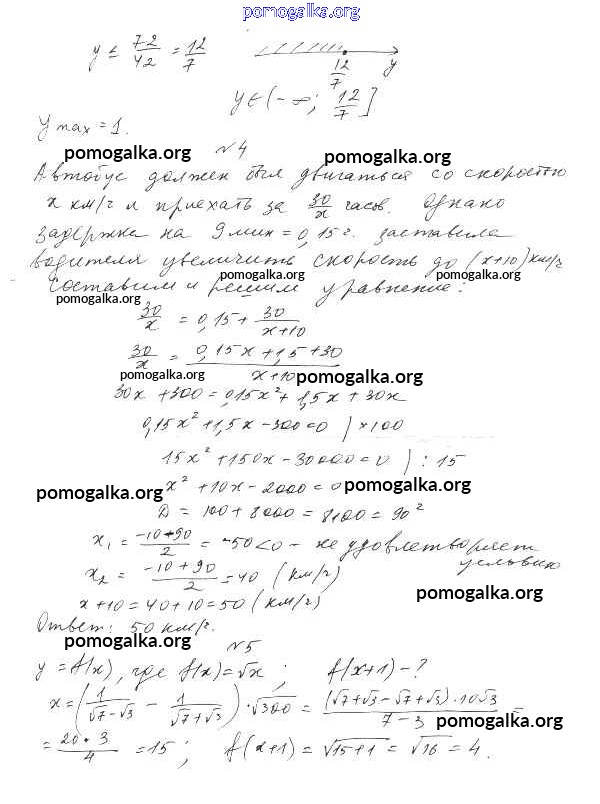 pomogalka.org
y ≤ 72/42 = 12/7
12/7 y
y ∈ (-∞; 12/7]
y max = 1.
№4
pomogalka.org pomogalka.org
Автобус должен был двигаться со скоростью
x км/ч и приехать за 30/x часов. Однако
задержка на 9 мин = 0,15 ч. заставила
водителя увеличить скорость до (x+10) км/ч
pomogalka.org
Составим и решим уравнение:
pomogalka.org pomogalka.org
30/x = 0,15 + 30/(x+10)
30/x = (0,15x + 1,5 + 30)/(x+10)
pomogalka.org pomogalka.org
30x + 300 = 0,15x² + 1,5x + 30x
0,15x² + 1,5x - 300 = 0 | ×100
15x² + 150x - 30000 = 0 | : 15
pomogalka.org x² + 10x - 2000 = 0 pomogalka.org
D = 100 + 8000 = 8100 = 90²
x₁ = (-10+90)/2 = -50 < 0 - не удовлетворяет
условию
x₂ = (-10+90)/2 = 40 (км/ч)
pomogalka.org
x + 10 = 40 + 10 = 50 (км/ч)
Ответ: 50 км/ч.
pomogalka.org №5
y = f(x), где f(x) = √x ; f(x+1) - ?
x = (1/(√7-√3) - 1/(√7+√3)) · √300 = ((√7+√3-√7+√3)·10√3)/(7-3) =
pomogalka.org
= (20·3)/4 = 15 ; f(x+1) = √(15+1) = √16 = 4.